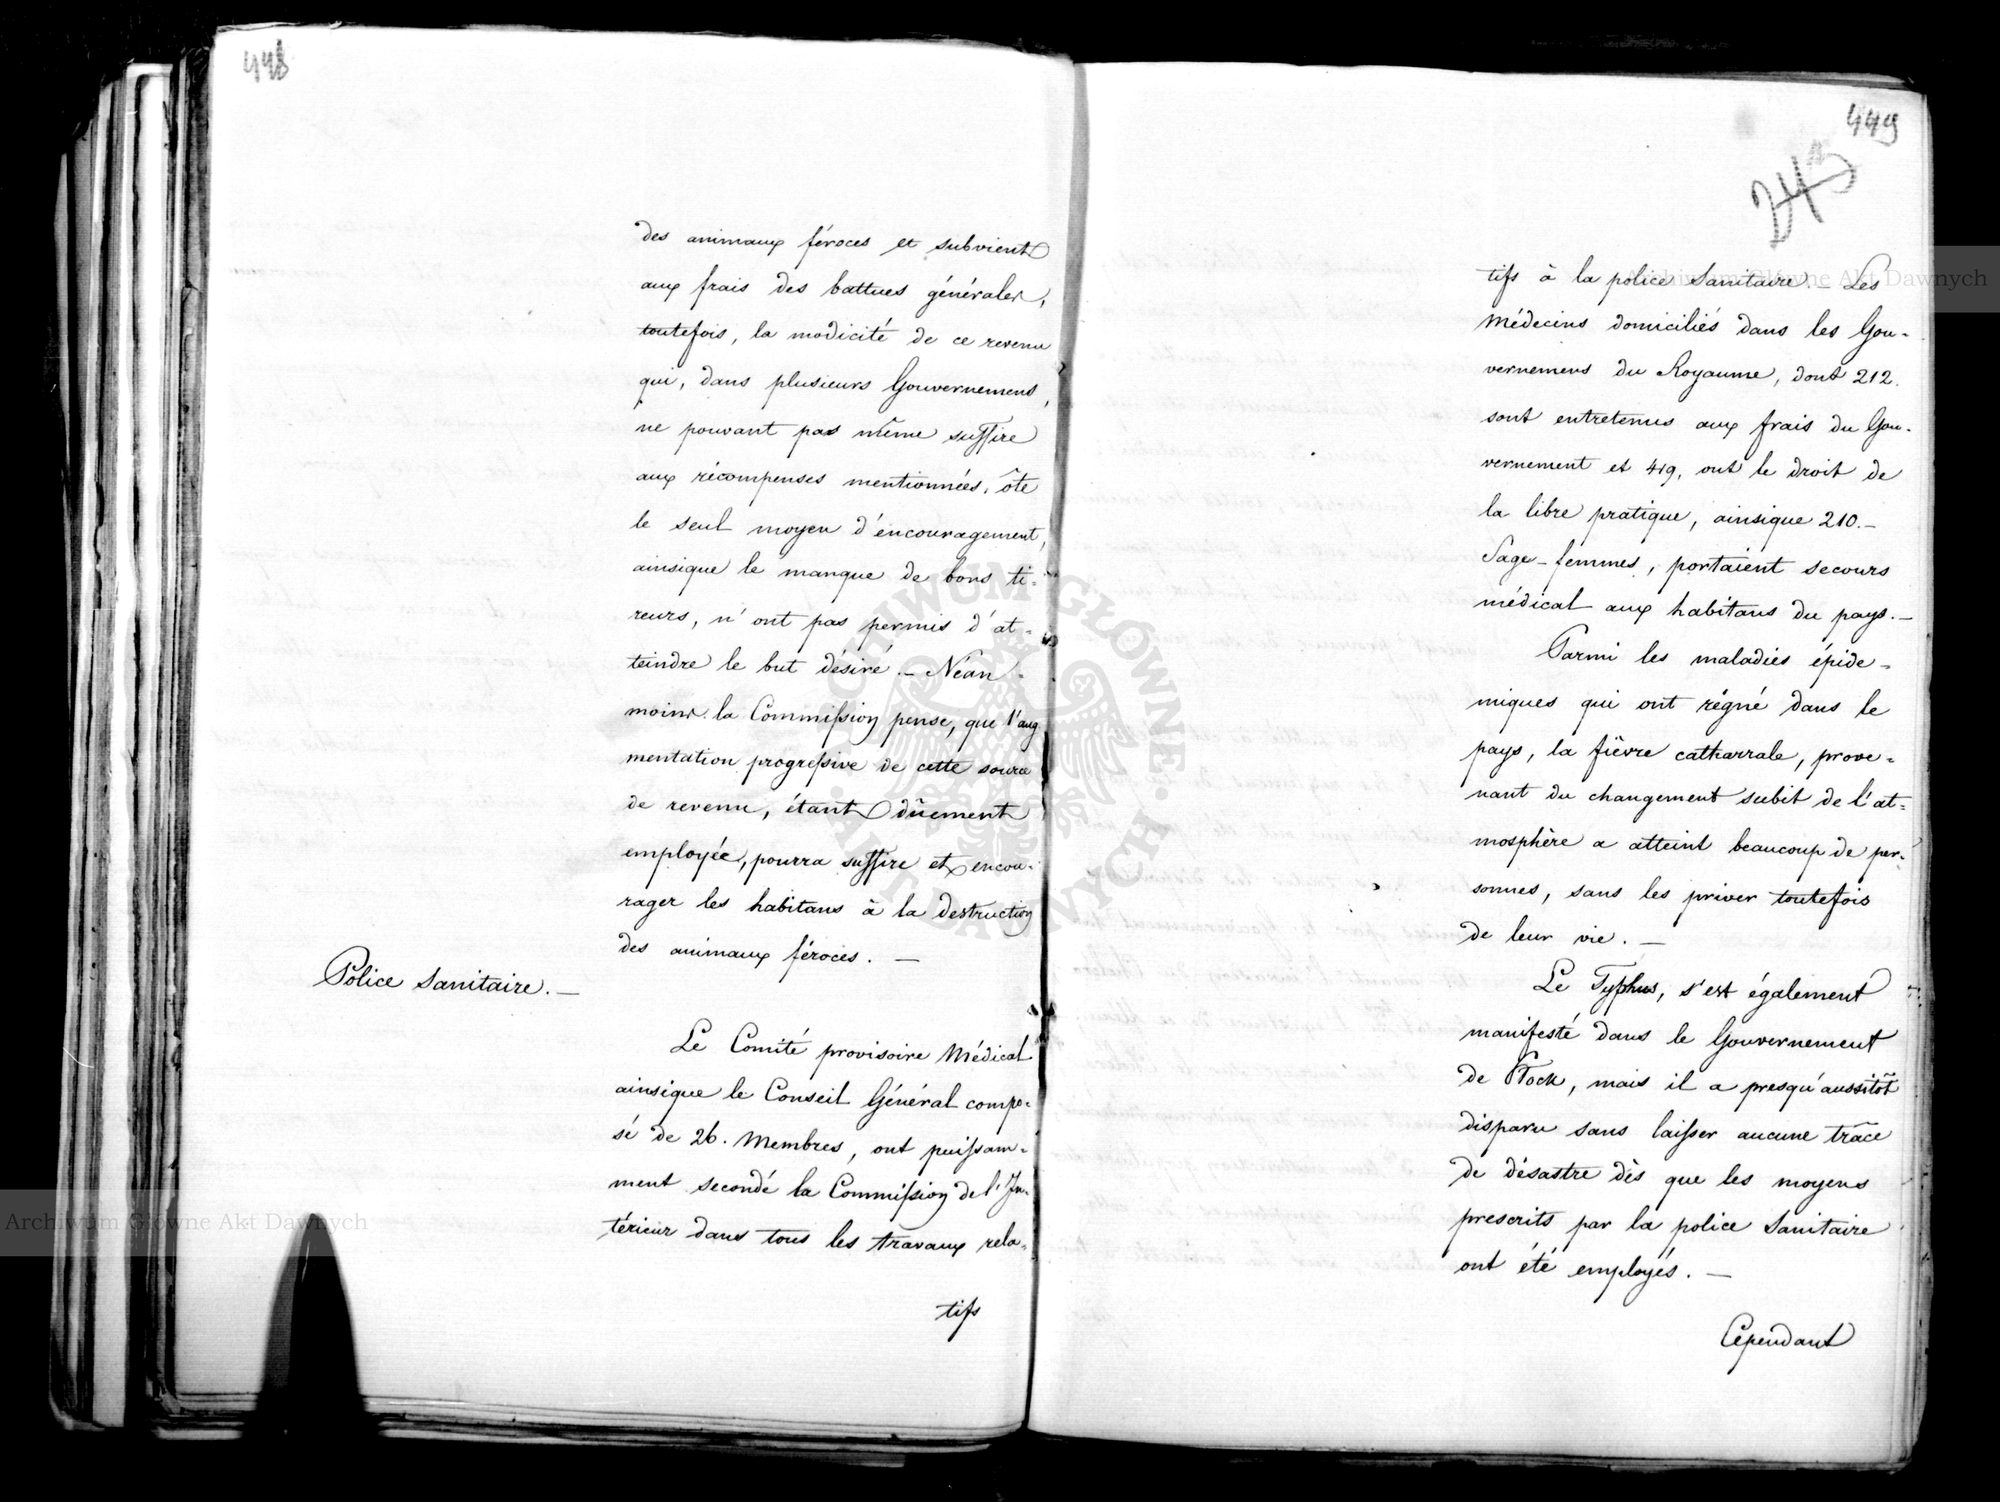 448
des animaux féroces et subvient
aux frais des battues générales,
toutefois, la modicité de ce revenu
qui, dans plusieurs Gouvernemens,
ne pouvant pas même suffire
aux récompenses mentionnées, ôte
le seul moyen d'encouragement,
ainsique le manque de bons ti-
reurs, n'ont pas permis d'at-
teindre le but désiré. — Néan-
moins la Commission pense, que l'aug
mentation progressive de cette source
de revenu, étant dûement
employée, pourra suffire et encou-
rager les habitans à la destruction
des animaux féroces. —
Police Sanitaire. —
Le Comité provisoire Médical
ainsique le Conseil Général compo-
sé de 26. Membres, ont puissam-
ment secondé la Commission de l'In-
térieur dans tous les travaux rela-
tifs
449
243
tifs à la police Sanitaire. — Les
Médecins domiciliés dans les Gou-
vernemens du Royaume, dont 212.
sont entretenus aux frais du Gou-
vernement et 419, ont le droit de
la libre pratique, ainsique 210. —
Sage-femmes, portaient secours
médical aux habitans du pays. —
Parmi les maladies épide-
miques qui ont régné dans le
pays, la fièvre catharrale, prove-
nant du changement subit de l'at-
mosphère a atteint beaucoup de per-
sonnes, sans les priver toutefois
de leur vie. —
Le Typhus, s'est également
manifesté dans le Gouvernement
de Plock, mais il a presqu'aussitôt
disparu sans laisser aucune trâce
de désastre dès que les moyens
prescrits par la police Sanitaire
ont été employés. —
Cependant
Archiwum Główne Akt Dawnych
Archiwum Główne Akt Dawnych
ARCHIWUM GŁÓWNE AKT DAWNYCH